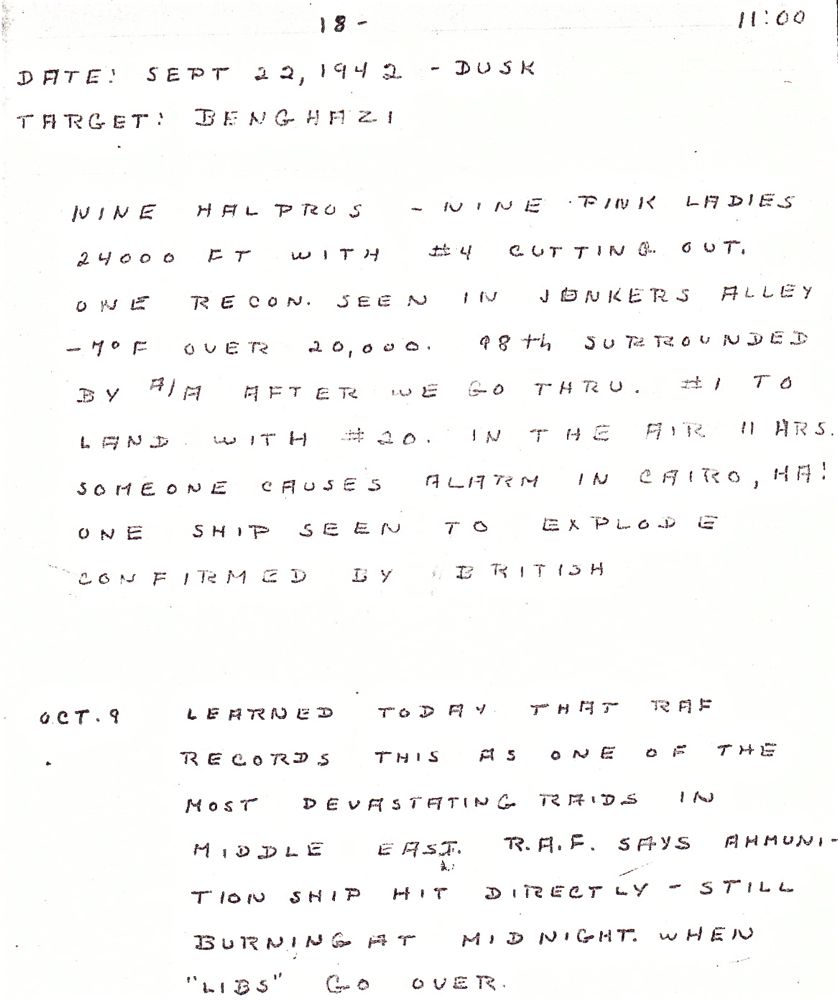 18-
11:00
DATE: SEPT 22, 1942 - DUSK
TARGET: BENGHAZI
NINE HALPROS - NINE PINK LADIES
24000 FT WITH #4 CUTTING OUT.
ONE RECON. SEEN IN JONKERS ALLEY
-7°F OVER 20,000. 98th SURROUNDED
BY A/A AFTER WE GO THRU. #1 TO
LAND WITH #20. IN THE AIR 11 HRS.
SOMEONE CAUSES ALARM IN CAIRO, HA!
ONE SHIP SEEN TO EXPLODE
CONFIRMED BY BRITISH
OCT. 9 LEARNED TODAY THAT RAF
RECORDS THIS AS ONE OF THE
MOST DEVASTATING RAIDS IN
MIDDLE EAST. R.A.F. SAYS AMMUNI-
TION SHIP HIT DIRECTLY - STILL
BURNING AT MIDNIGHT. WHEN
"LIBS" GO OVER.